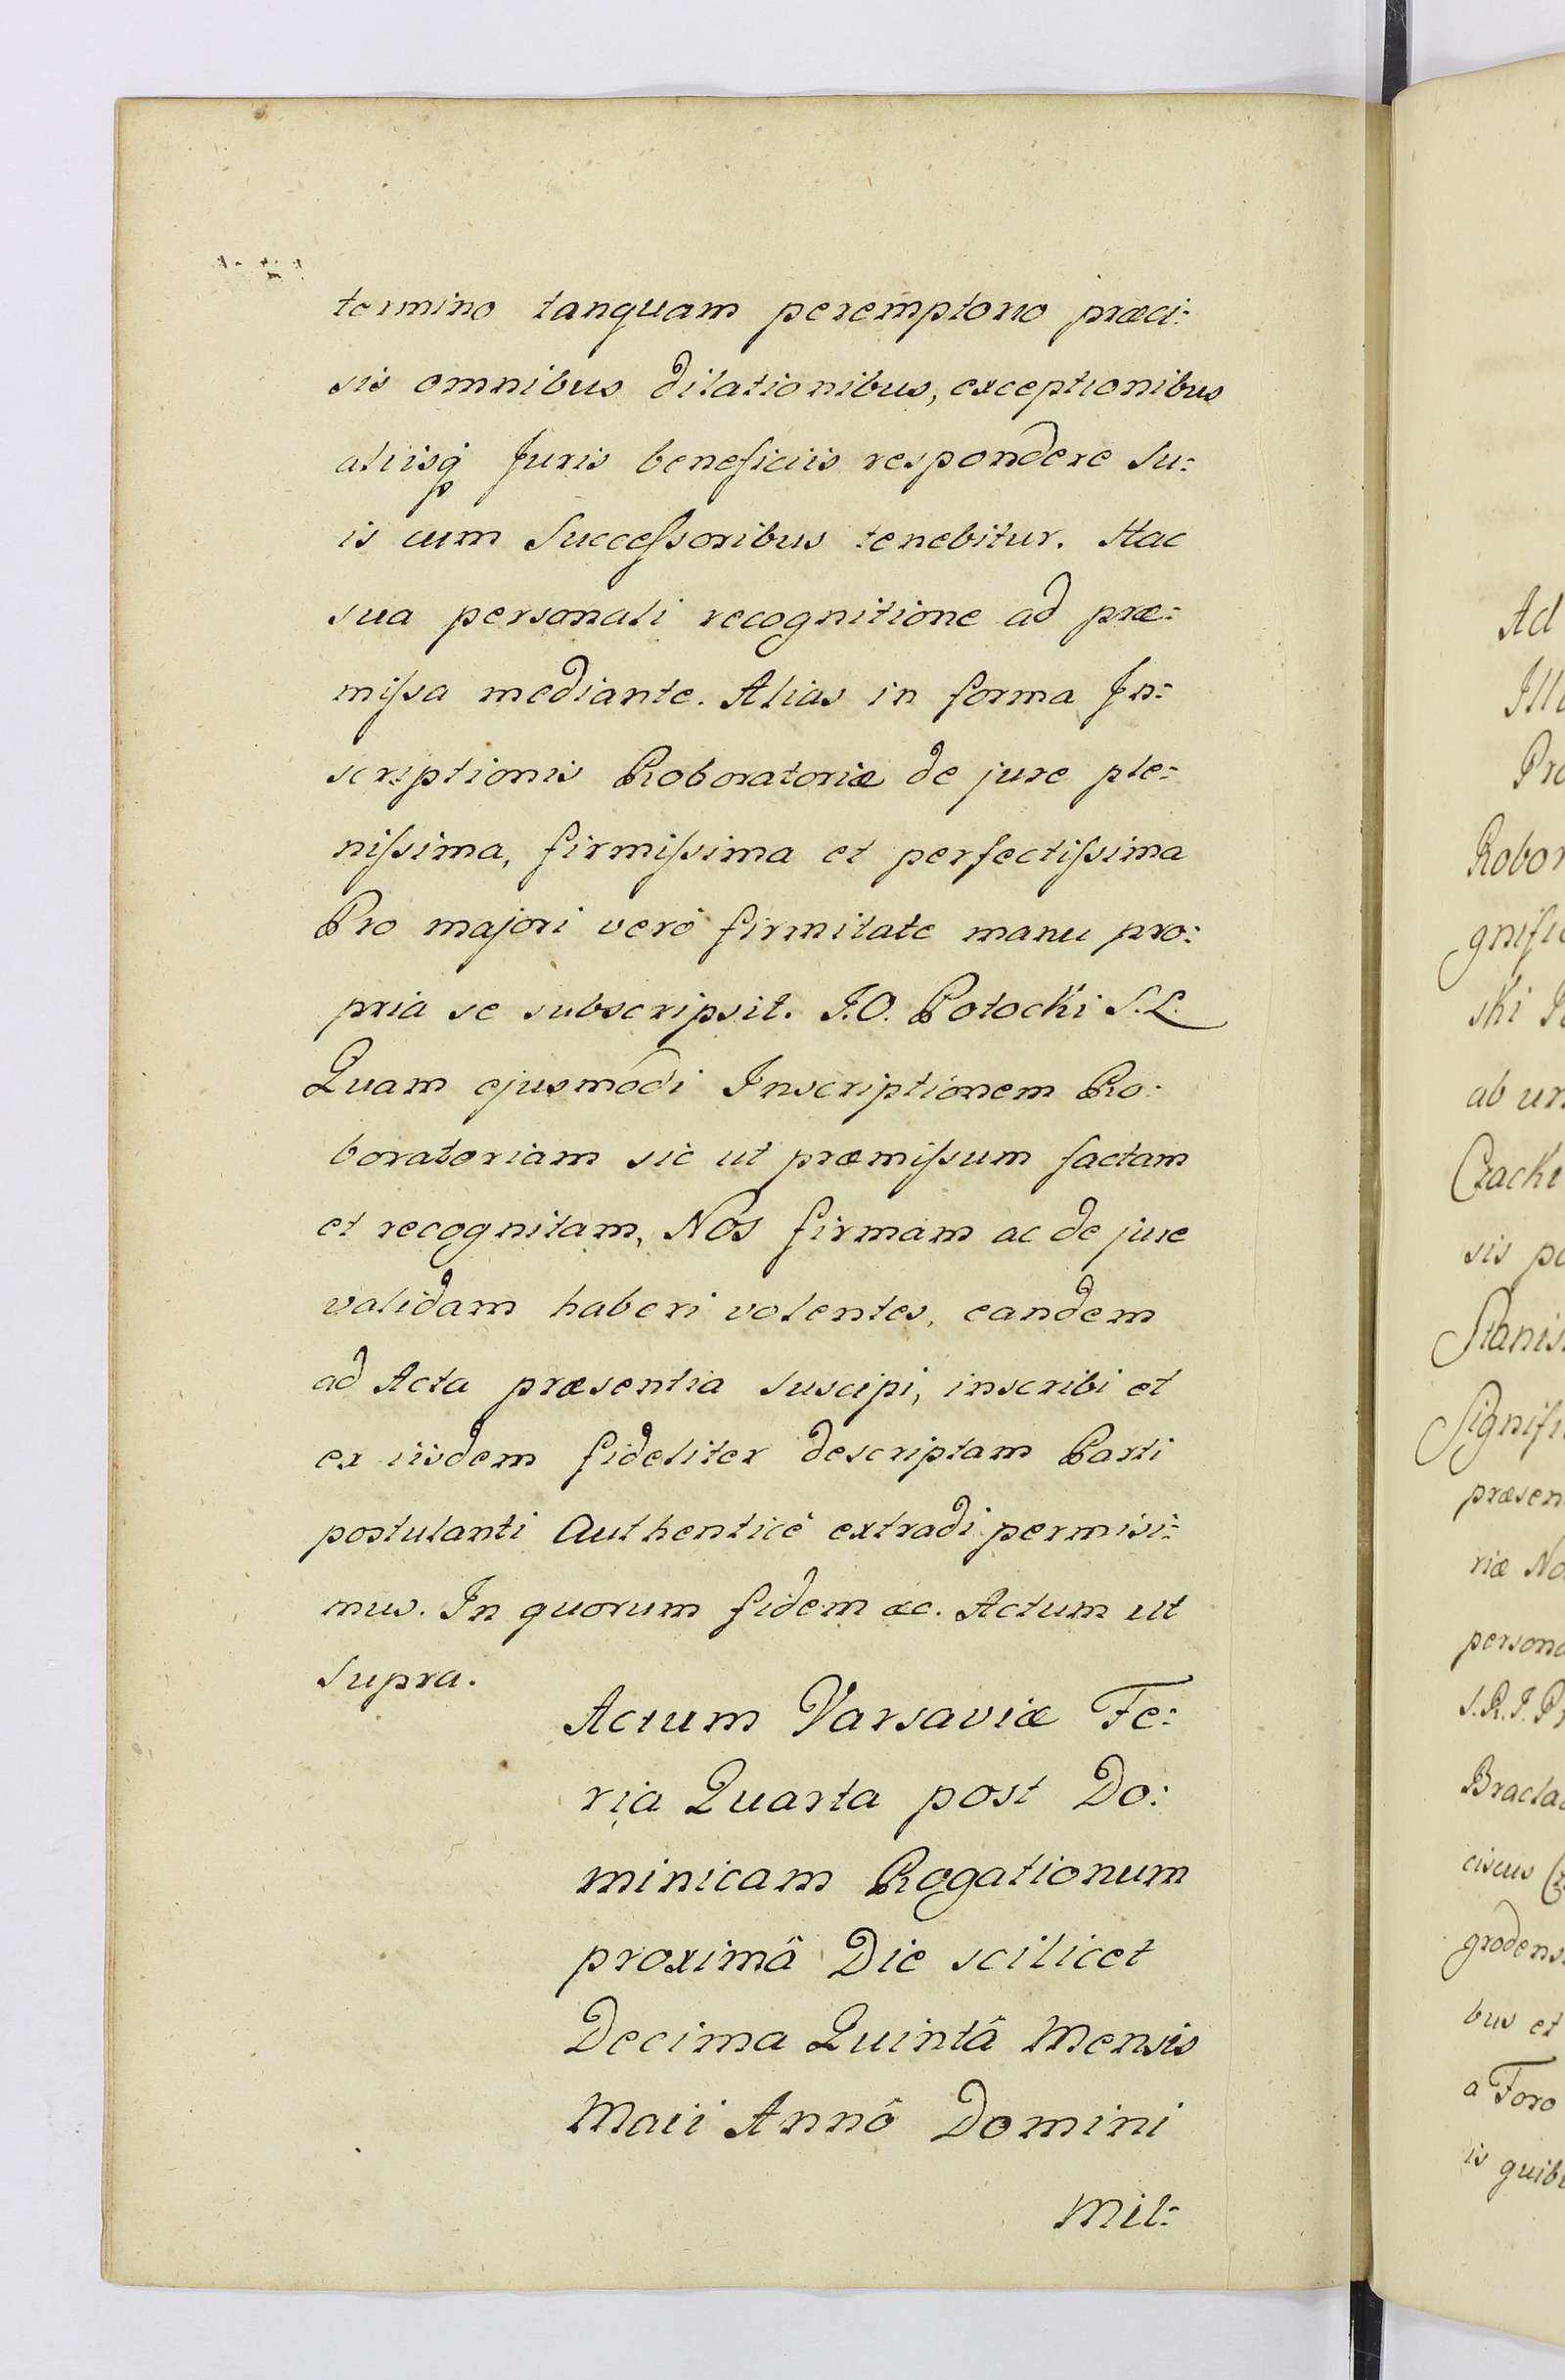 termino tanquam peremptorio præci:
sis omnibus dilationibus, exceptionibus
aliisq Juris beneficiis respondere Su:
is cum Successoribus tenebitur. Hac
sua personali recognitione ad præ:
missa mediante. Alias in forma In:
scriptionis Roboratoriæ de jure ple:
nissima, firmissima et perfectissima
Pro majori verò firmitate manu pro:
pria se subscripsit. I.O. Potocki S.L.
Quam ejusmodi Inscriptionem Ro:
boratoriam sic ut præmissum factam
et recognitam, Nos firmam ac de jure
validam haberi volentes, eandem
ad Acta præsentia suscipi, inscribi et
ex iisdem fideliter descriptam Parti
postulanti Authenticè extradi permisi:
mus. In quorum fidem &c. Actum ut
supra.
Actum Varsaviæ Fe:
ria Quarta post Do:
minicam Rogationum
proximâ Die scilicet
Decima Quintâ Mensis
Maii Annô Domini
Mil:
Ad
Ill
Pro
Robor
gnifi
ski
ab un
Czacki
sis
Stanis
Signifi
præsen
riæ No
person
S.R.I. Pr
Bracla
ciscus
grodens
bus et
a Foro
is quib